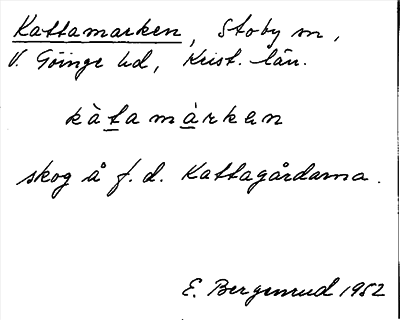 Kattamarken, Stoby sn,
V. Göinge hd, Krist. län.
kàtamàrkən
skog å f.d. Kattagårdarna.
E. Bergenrud 1952